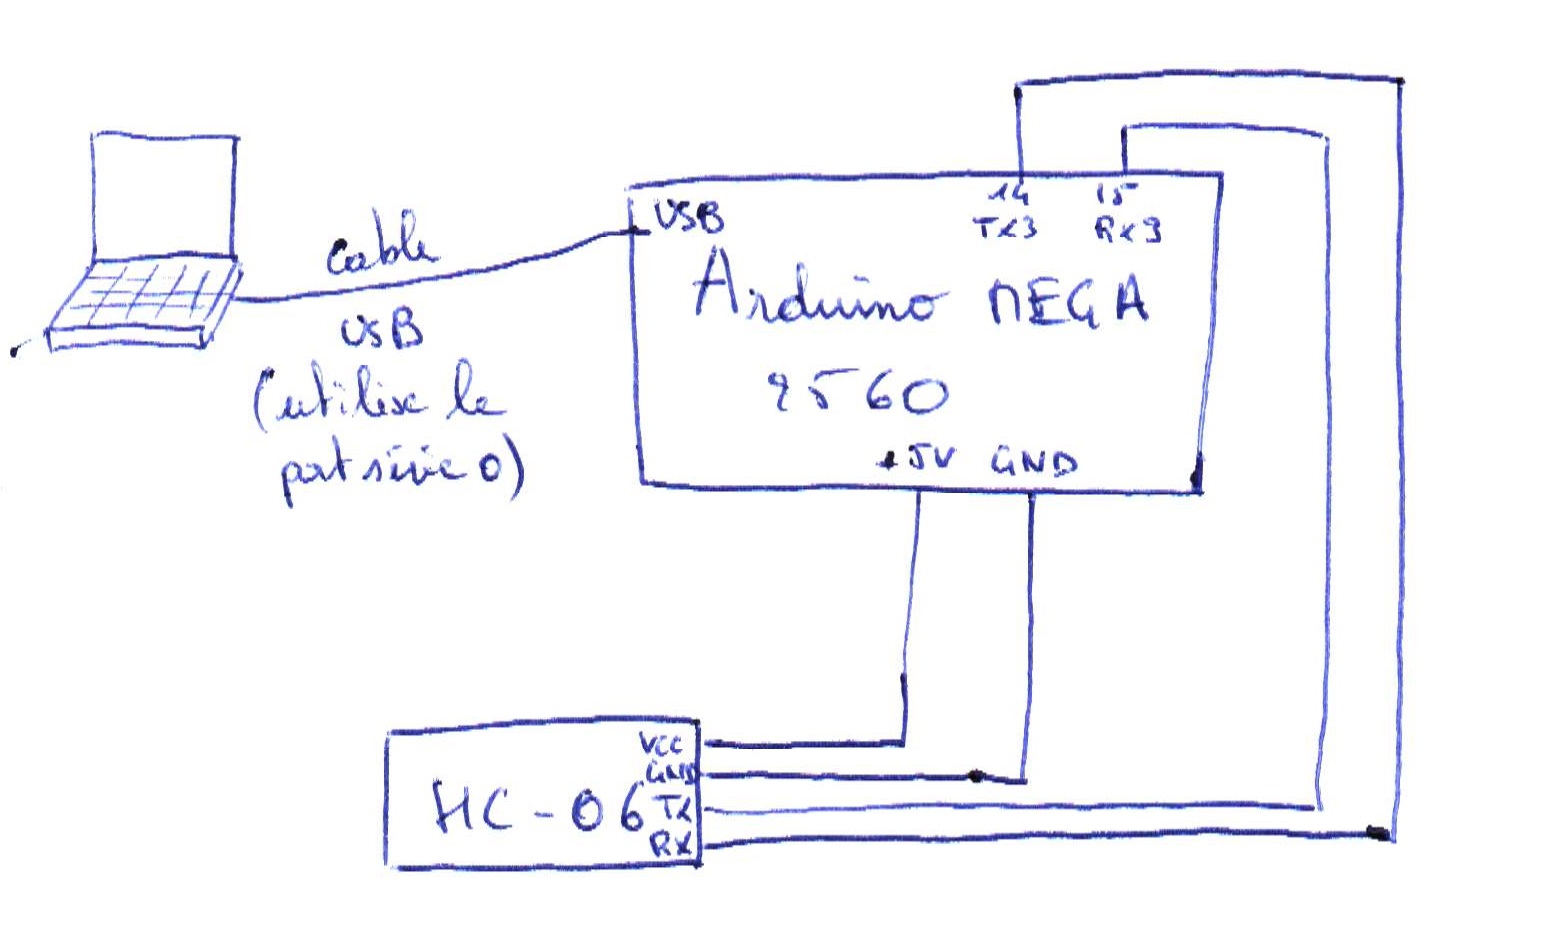 cable
USB
(utilise le
port série 0)
USB
14 15
TX3 RX3
Arduino MEGA
2560
+5V GND
VCC
GND
HC-06 TX
RX